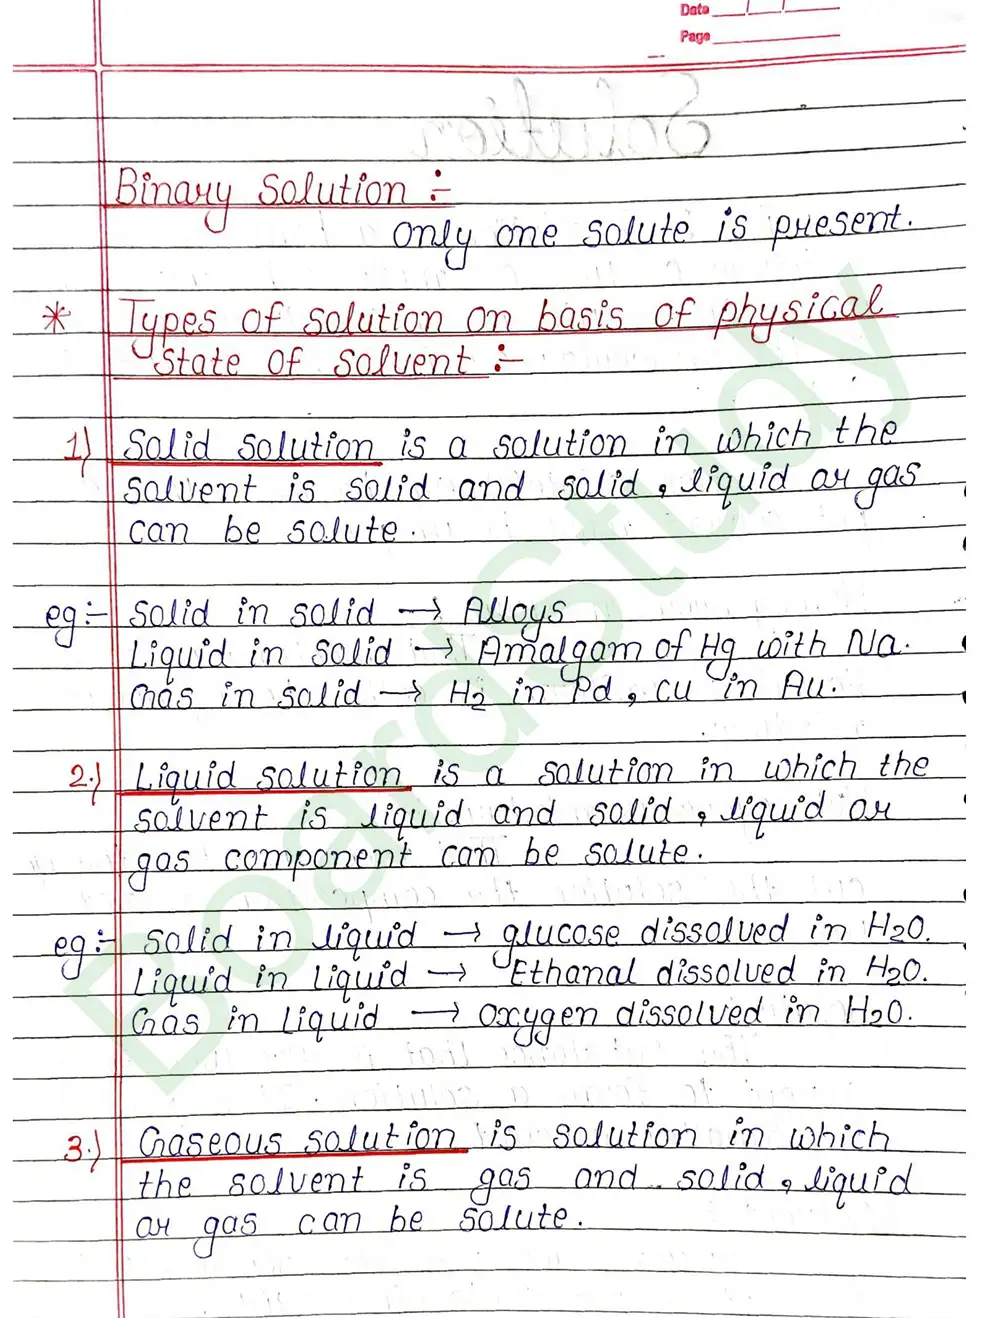 Date
Page
Solution
Binary Solution :-
only one solute is present.
* Types of solution on basis of physical
state of solvent :-
1) Solid solution is a solution in which the
solvent is solid and solid, liquid or gas
can be solute.
eg:- Solid in solid → Alloys
Liquid in solid → Amalgam of Hg with Na.
Gas in solid → H2 in Pd, Cu in Au.
2.) Liquid solution is a solution in which the
solvent is liquid and solid, liquid or
gas component can be solute.
eg:- Solid in liquid → glucose dissolved in H2O.
Liquid in liquid → Ethanal dissolved in H2O.
Gas in liquid → oxygen dissolved in H2O.
3.) Gaseous solution is solution in which
the solvent is gas and solid, liquid
or gas can be solute.
BoardStudy